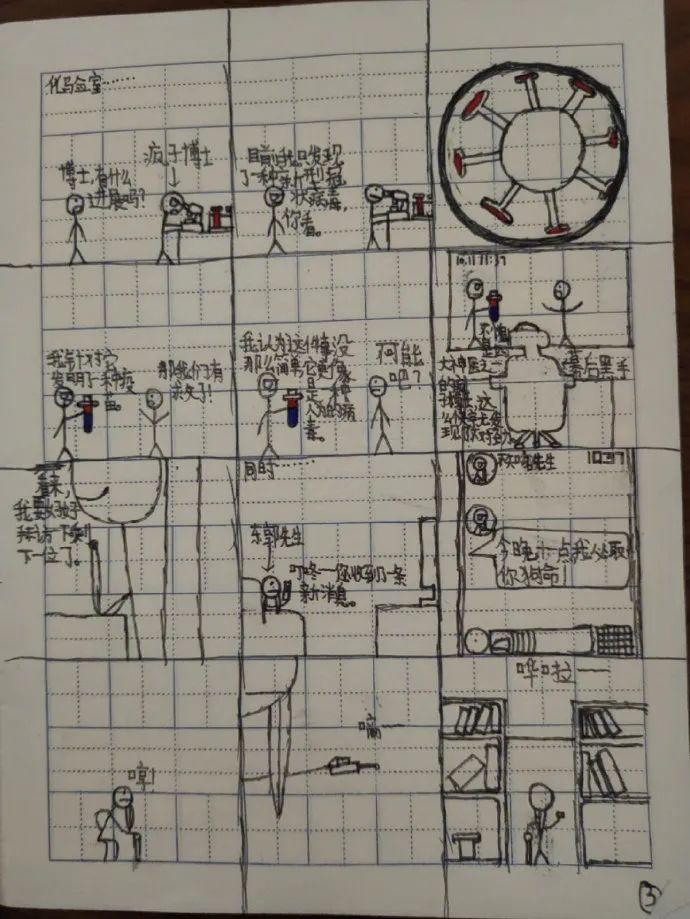 化马金室……
博士,有什么
进展吗?
疯子博士
目前我只发现
了一种新型冠
状病毒,
你看。
我针对它
发明了一种疫
苗。
那我们有
求失了!
我认为这件事没
那么简单,它更像
是人为的病
毒。
可能
吧?
10.11 11:37
不愧
是
大神医之一
的疯
子博士,这
么快就发
现
幕后黑手
看来,
我要
下一位了。
同时……
东郭先生
叮咚——您收到了一条
新消息。
先生
10:37
今晚十一点我必取
你狗命!
嘀——
哗啦——
3